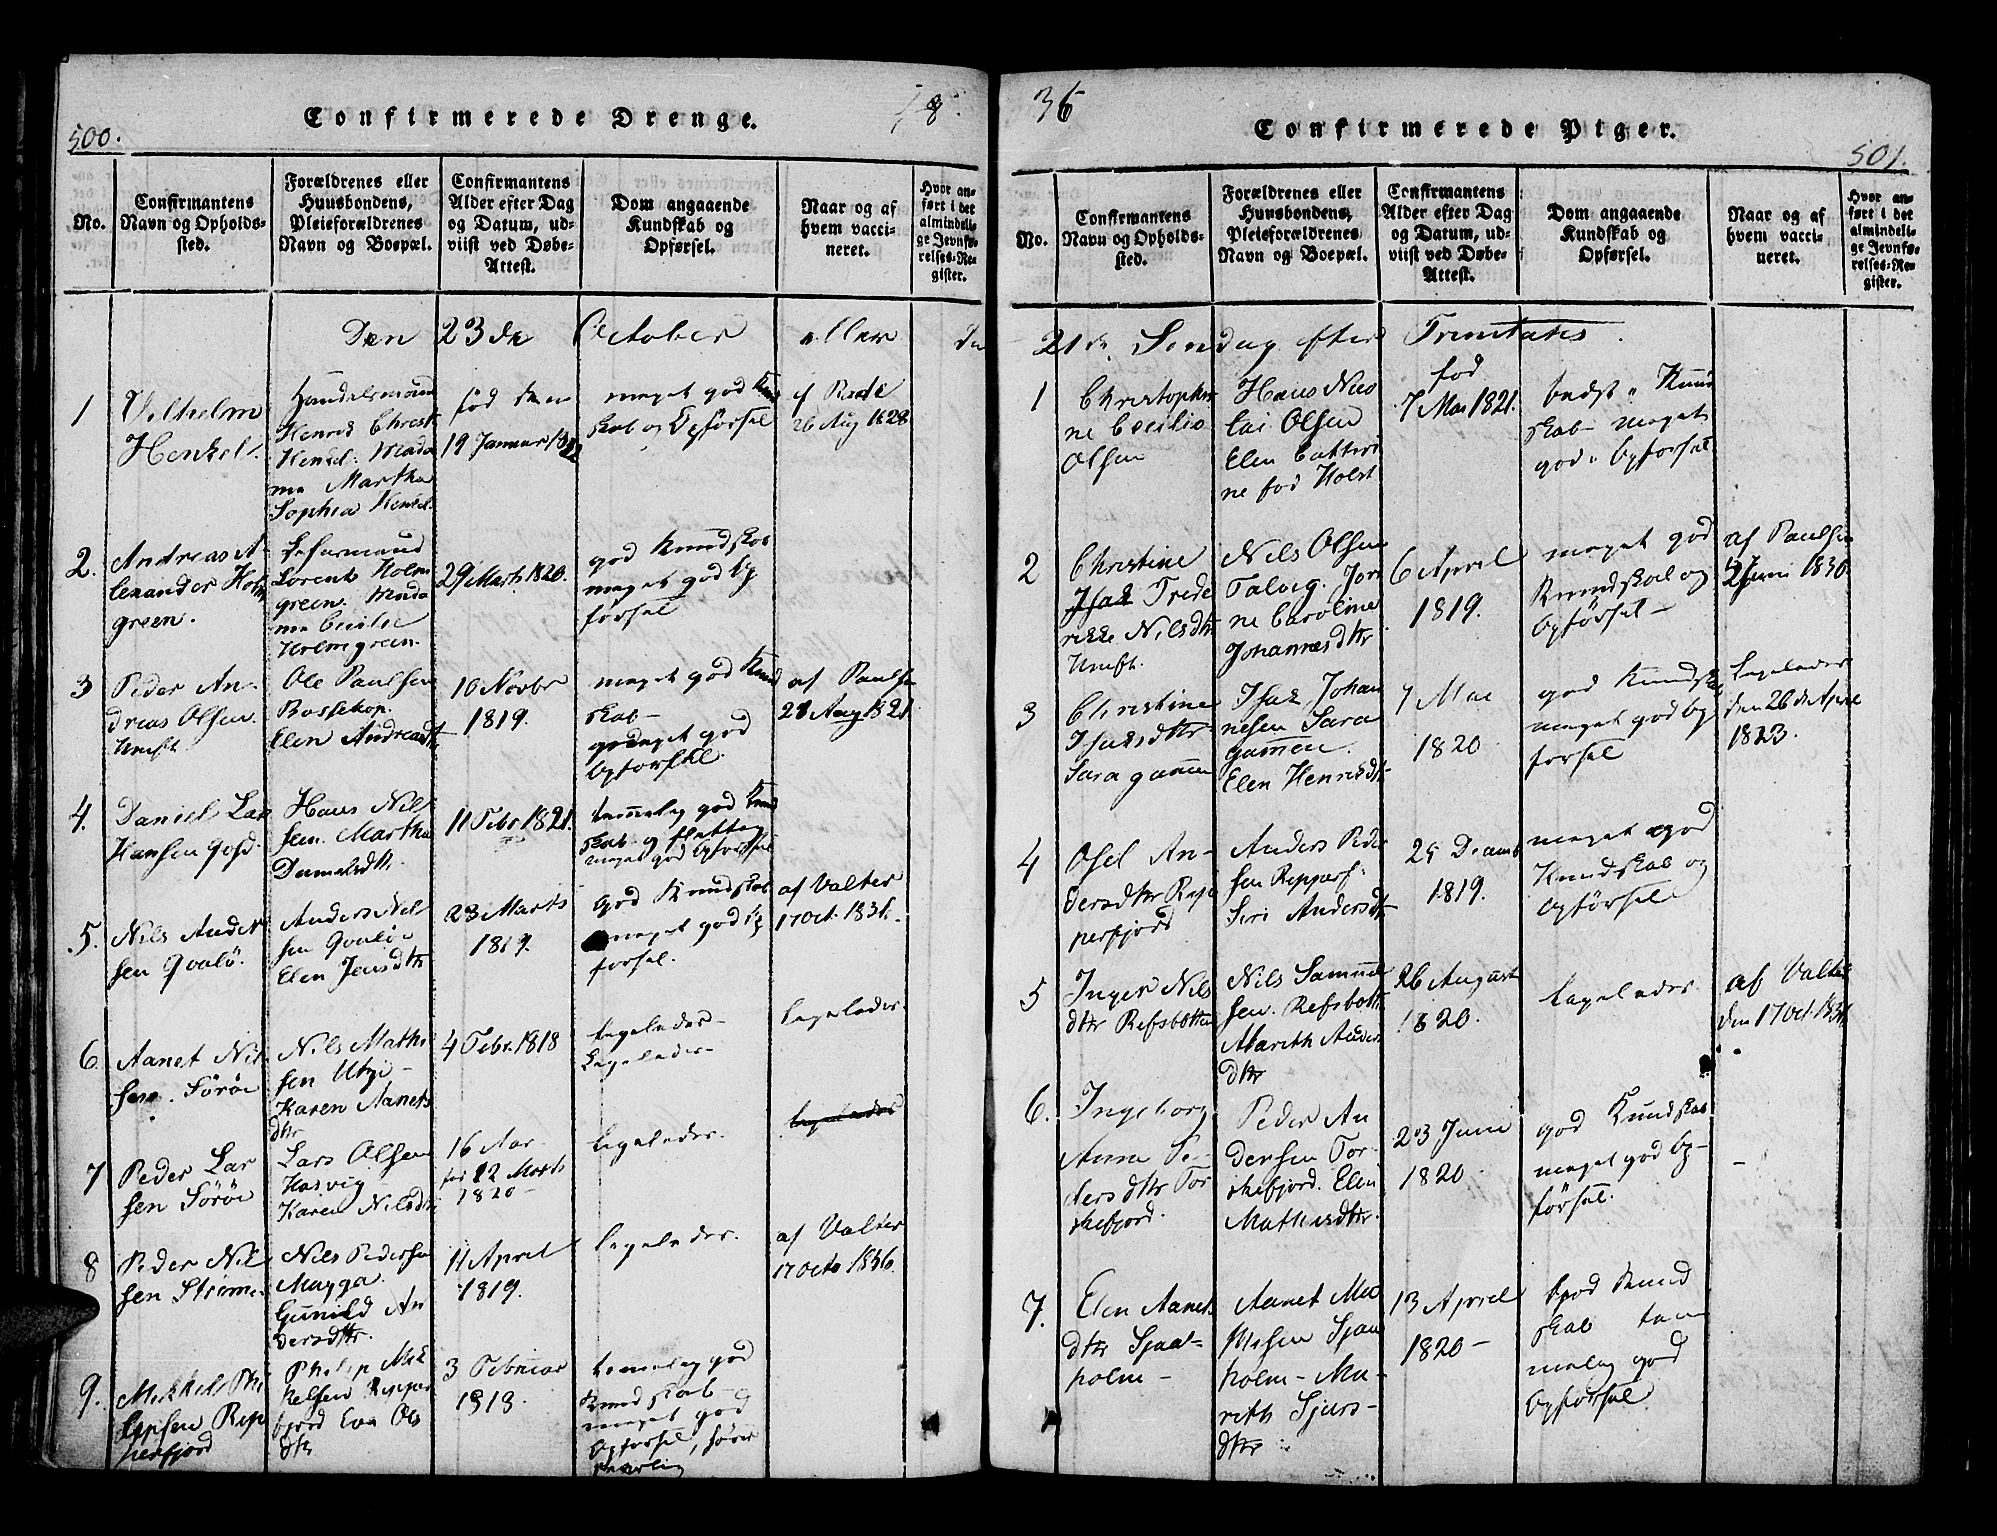 500.
Confirmerede Drenge.
18
No.
Confirmantens
Navn og Opholds-
sted.
Forældrenes eller
Huusbondens,
Pleieforældrenes
Navn og Boepæl.
Confirmantens
Alder efter Dag
og Datum, ud-
viist ved Døbe-
Attest.
Dom angaaende
Kundskab og
Opførsel.
Naar og af
hvem vacci-
neret.
Hvor an-
ført i det
almindeli-
ge Jevnfø-
relses-Re-
gister.
Den 23de October eller den
1
Vilhelm
Henkel.
Handelsmand
Henrik Christ
Henkel. Mada
me Martha
Sophia Henkel.
fød den
19 Januar 1822
meget god Kund
skab og Opførsel
af Rode
26 Aug 1828
2.
Andreas A-
lexander Holm
green.
Lorents Holm
green. Mada
me Cecilie
Holmgreen.
29 Marts 1820.
god Kundskab
meget god Op
førsel
3
Peder An-
dreas Olsen
Ole Paulsen
Bossekop.
Elen Andreadtr
10 Novbr
1819.
meget god Kund
skab-
meget god
Opførsel.
af Paulsen
21 Aug 1821
4.
Daniel Lars
Hansen
Hans Nil
sen. Martha
Danielsdtr.
11 Febr 1821.
temmelig god Kund
skab
meget god Opførsel
5.
Nils Ander
sen Qvalö.
Anders Nil
sen Qvalöe
Elen Jensdtr
23 Marts
1819.
god Kundskab
meget god Op
førsel.
af Valter
17 Oct. 1836.
6
Aanet Nil
sen. Sörøe
Nils Mathi
sen
Karen Aanets
dtr
4 Febr. 1818
Ligeledes-
Ligeledes-
Ligeledes.
7
Peder Lar
sen Sörøe
Lars Olsen
Hasvig
Karen Nilsdtr
16 Aar
før 12 Marts
1820-
Ligeledes.
Ligeledes
8
Peder Nil
sen
Nils Pedersen
Maggа.
Gunild An
dersdtr.
11 April
1819.
Ligeledes.
af Valter
17 Octo 1836.
9.
Mikkel Phi
lipsen Rep
perfjord
Philip Mik
kelsen Repper
fjord Eva Ols
dtr
3 Februar
1818.
temmelig god
Kundskab-
meget god
Opførsel,
36
Confirmerede Piger.
501.
No.
Confirmantens
Navn og Opholds-
sted.
Forældrenes eller
Huusbondens,
Pleieforældrenes
Navn og Boepæl.
Confirmantens
Alder efter Dag
og Datum, ud-
viist ved Døbe-
Attest.
Dom angaaende
Kundskab og
Opførsel.
Naar og af
hvem vacci-
neret.
Hvor an-
ført i det
almindeli-
ge Jevnfø-
relses-Re-
gister.
21de Søndag efter Trinitatis.
1
Christophi
ne Cecilia
Olsen
Hans Nico
lai Olsen
Elen Cathri
ne fød Holst
fød
7 Mai 1821.
bedst Kund
skab- meget
god Opførsel
2
Christine
Isak Frede
rikke Nilsdtr
Nils Olsen
Talvig. Jor
ne Caroline
Johannesdtr
6 April
1819.
meget god
Kundskab og
Opførsel-
af Paulsen
21 Juni 1830
3
Christine
Isaksdtr
Saragamen
Isak Johan
nesen Sara
gamen.
Elen Henriksdtr
7 Mai
1820
god Kundskab
meget god Op
førsel
Ligeledes
den 26de April
1823.
4
Osel An-
dersdtr Rep
perfjord
Anders Peder
sen Repparf.
Siri Andersdtr
25 Decemb
1819.
meget god
Kundskab og
Opførsel
5
Inger Nils
dtr Refsbotten
Nils Samuel
sen. Refsbotten
Marith Anders
dtr
26 August
1820.
Ligeledes.
af Valter
den 17 Oct. 1836
6.
Ingeborg
Anna Pe-
dersdtr Tor
skefjord.
Peder An
dersen Tor-
skefjord. Elen
Mathisdtr.
23 Juni
1820-
god Kundskab
meget god Op-
førsel.
-
7.
Elen Aanets
dtr Sjaa-
holm-
Aanet Ma
thisen Sjaa
holm- Ma-
rith Sjurs-
dtr
13 April
1820-
god Kund
skab tem
melig god
Opførsel